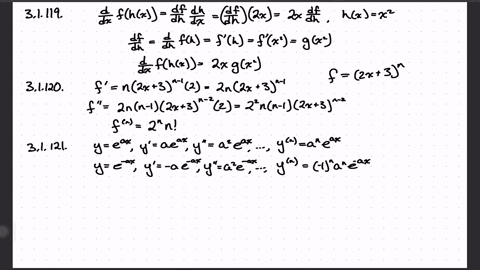 3.1.119. d/dx f(h(x)) = df/dh dh/dx = (df/dh)(2x) = 2x df/dh, h(x) = x²
df/dh = d/dh f(h) = f'(h) = f'(x²) = g(x²)
d/dx f(h(x)) = 2x g(x²)
f = (2x+3)ⁿ
3.1.120. f' = n(2x+3)ⁿ⁻¹(2) = 2n(2x+3)ⁿ⁻¹
f'' = 2n(n-1)(2x+3)ⁿ⁻²(2) = 2²n(n-1)(2x+3)ⁿ⁻²
f⁽ⁿ⁾ = 2ⁿn!
3.1.121. y = eᵃˣ, y' = aeᵃˣ, y'' = a²eᵃˣ, ..., y⁽ⁿ⁾ = aⁿeᵃˣ
y = e⁻ᵃˣ, y' = -ae⁻ᵃˣ, y'' = a²e⁻ᵃˣ, ..., y⁽ⁿ⁾ = (-1)ⁿaⁿe⁻ᵃˣ